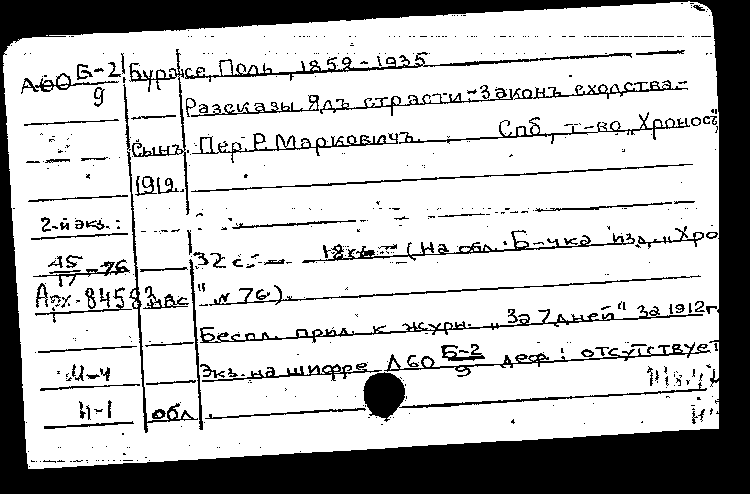 А60 Б-2/9 Бурже, Поль, 1859-1935
Разсказы. Ядъ страсти.-Законъ сходства.-
Сынъ. Пер. Р. Марковичъ. Спб., т-во „Хроносъ",
1912.
2-й экз.:
45/17-76 32 с. 18 см. (На обл.: Б-чка изд. „Хро
Арх. 84583 нос" № 76).
Беспл. прил. к журн. „За 7 дней" за 1912г.
М-4 Экз. на шифре А60 Б-2/9 деф.: отсутствует
И-1 обл.